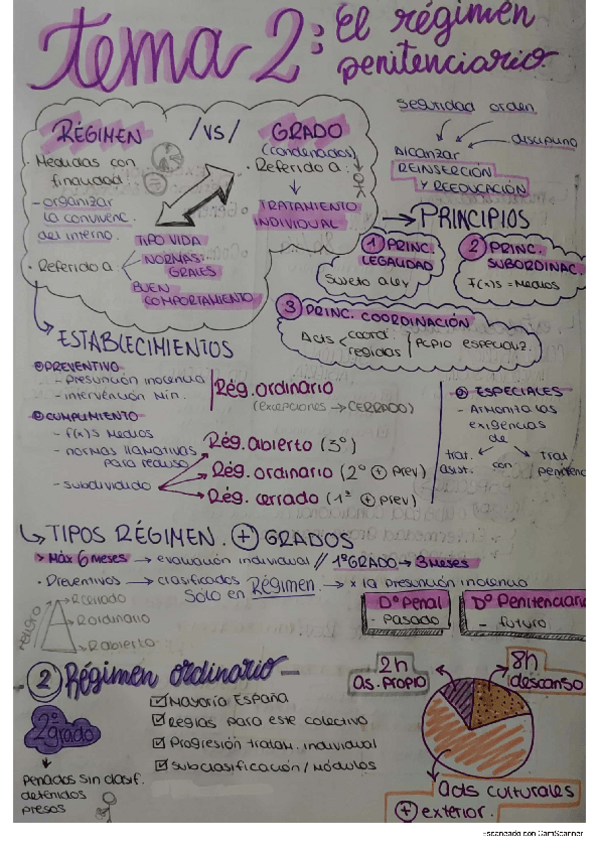 tema 2: El régimen
penitenciario
RÉGIMEN /VS/ GRADO
(condenados)
· Medidas con
finalidad
- organizar
la convivenc.
del interno.
· Referido a
TIPO VIDA
NORMAS
GRALES
BUEN
COMPORTAMIENTO
· Referido a:
TRATAMIENTO
INDIVIDUAL
Seguridad orden
disciplina
Alcanzar
REINSERCIÓN
Y REEDUCACIÓN
→ PRINCIPIOS
1 PRINC.
LEGALIDAD
Sujeto a ley
2 PRINC.
SUBORDINAC.
F(x)s = Medios
3 PRINC. COORDINACIÓN
Acts coord
regidas / Pcpio especializ.
ESTABLECIMIENTOS
PREVENTIVO
- Presunción inocencia
- intervención Min.
Rég. ordinario
(excepciones → CERRADO)
CUMPLIMIENTO
- f(x)s Medios
- normas
para recluso
- subdividido
Rég. abierto (3º)
Rég. ordinario (2º + Prev)
Rég. cerrado (1º + Prev)
ESPECIALES
- Armoniza las
exigencias
de
trat.
asist.
con
Trat.
penitenc
TIPOS RÉGIMEN + GRADOS
> Máx 6 meses → evaluación individual // 1º GRADO → 3 Meses
· Preventivos → clasificados
Sólo en Régimen → x la presunción inocencia
R cerrado
R ordinario
R abierto
Dº Penal
- Pasado
Dº Penitenciario
- futuro
2 Régimen ordinario -
2º
grado
Penados sin clasif.
detenidos
presos
☑ Mayoría España
☑ Reglas para este colectivo
☑ Progresión tratam. individual
☑ Subclasificación / Módulos
2h
as. propio
8h
descanso
acts culturales
+ exterior.
Escaneado con CamScanner